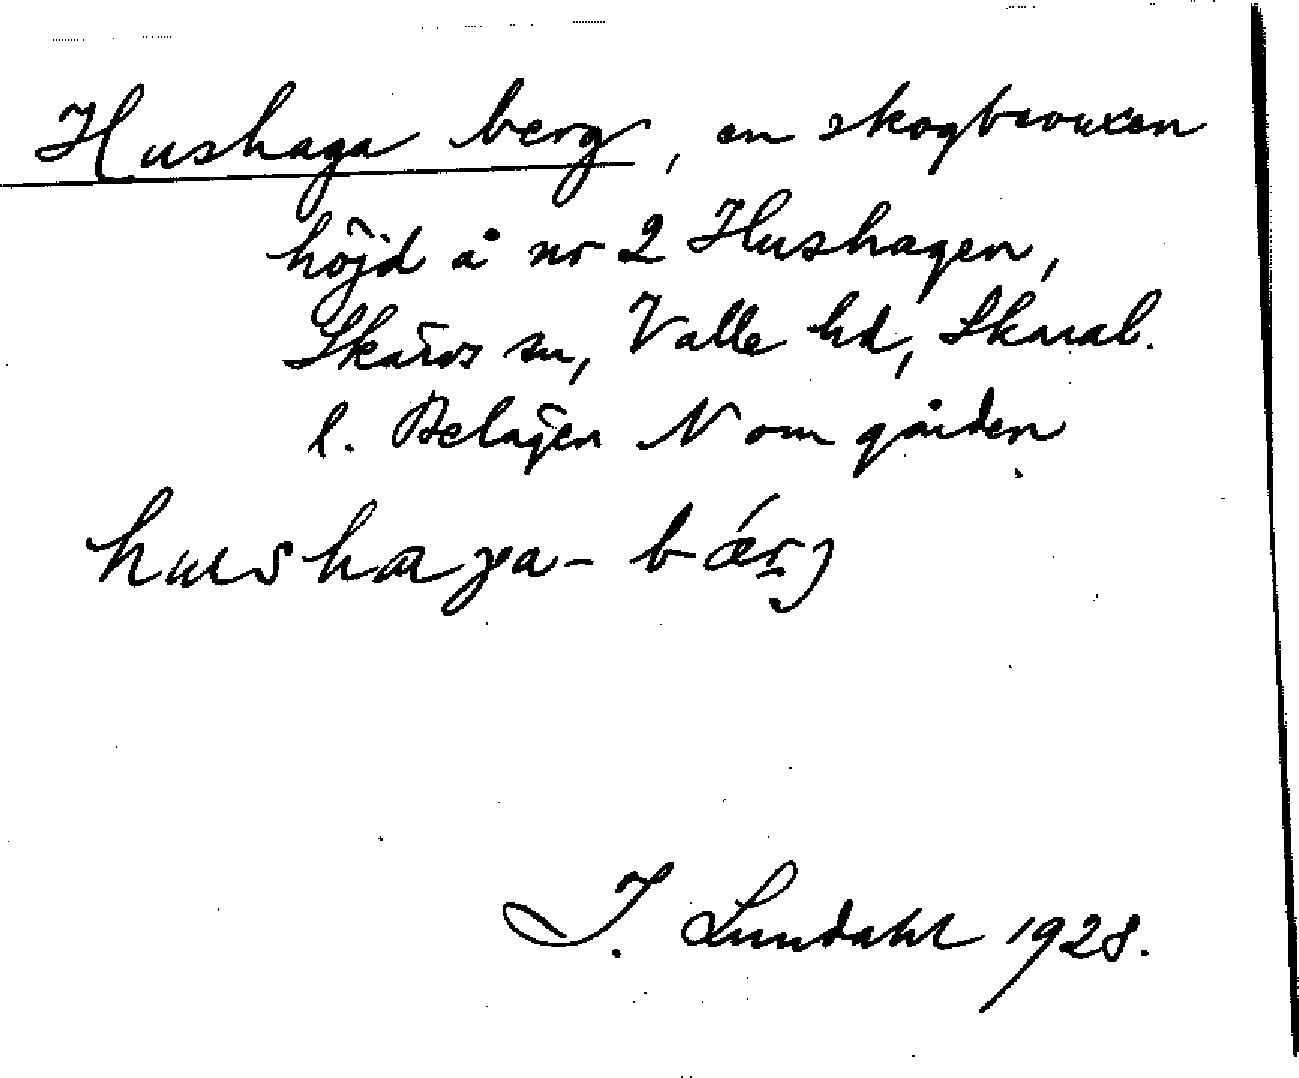 Hushaga berg, en skogbevuxen
höjd å nr 2 Hushagen,
Skärvs sn, Valle hd, Skarab.
l. Belägen N om gården
hushaga-bærj
I. Lundahl 1928.